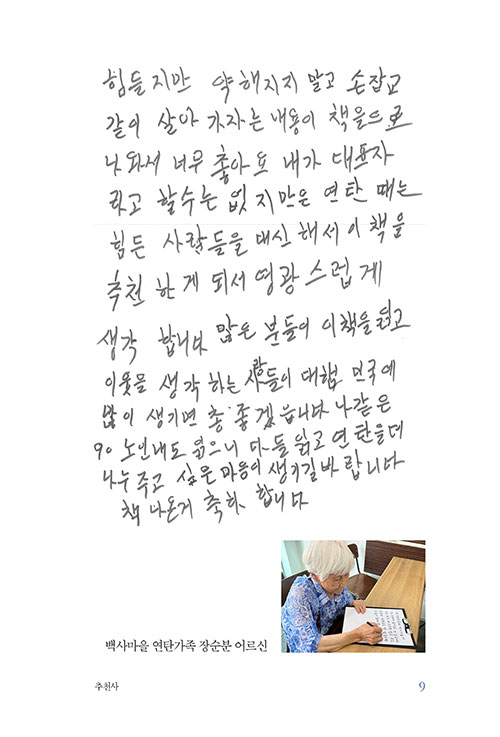 힘들지만 약해지지 말고 손잡고
같이 살아 가자는 내용이 책을으로
나와서 너무 좋아요 내가 대표자
라고 할수는 없지만은 연탄 때는
힘든 사람들을 대신해서 이 책을
추천 하게 되서 영광스럽게
생각 합니다 많은 분들이 이책을 읽고
이웃을 생각 하는 사람들이 대한 민국에
많이 생기면 좋겠습니다 나같은
90 노인네도 읽으니 다들 읽고 연탄을더
나누 주고 싶은 마음이 생기길 바랍니다
책 나온거 축하 합니다
백사마을 연탄가족 장순분 어르신
추천사
9